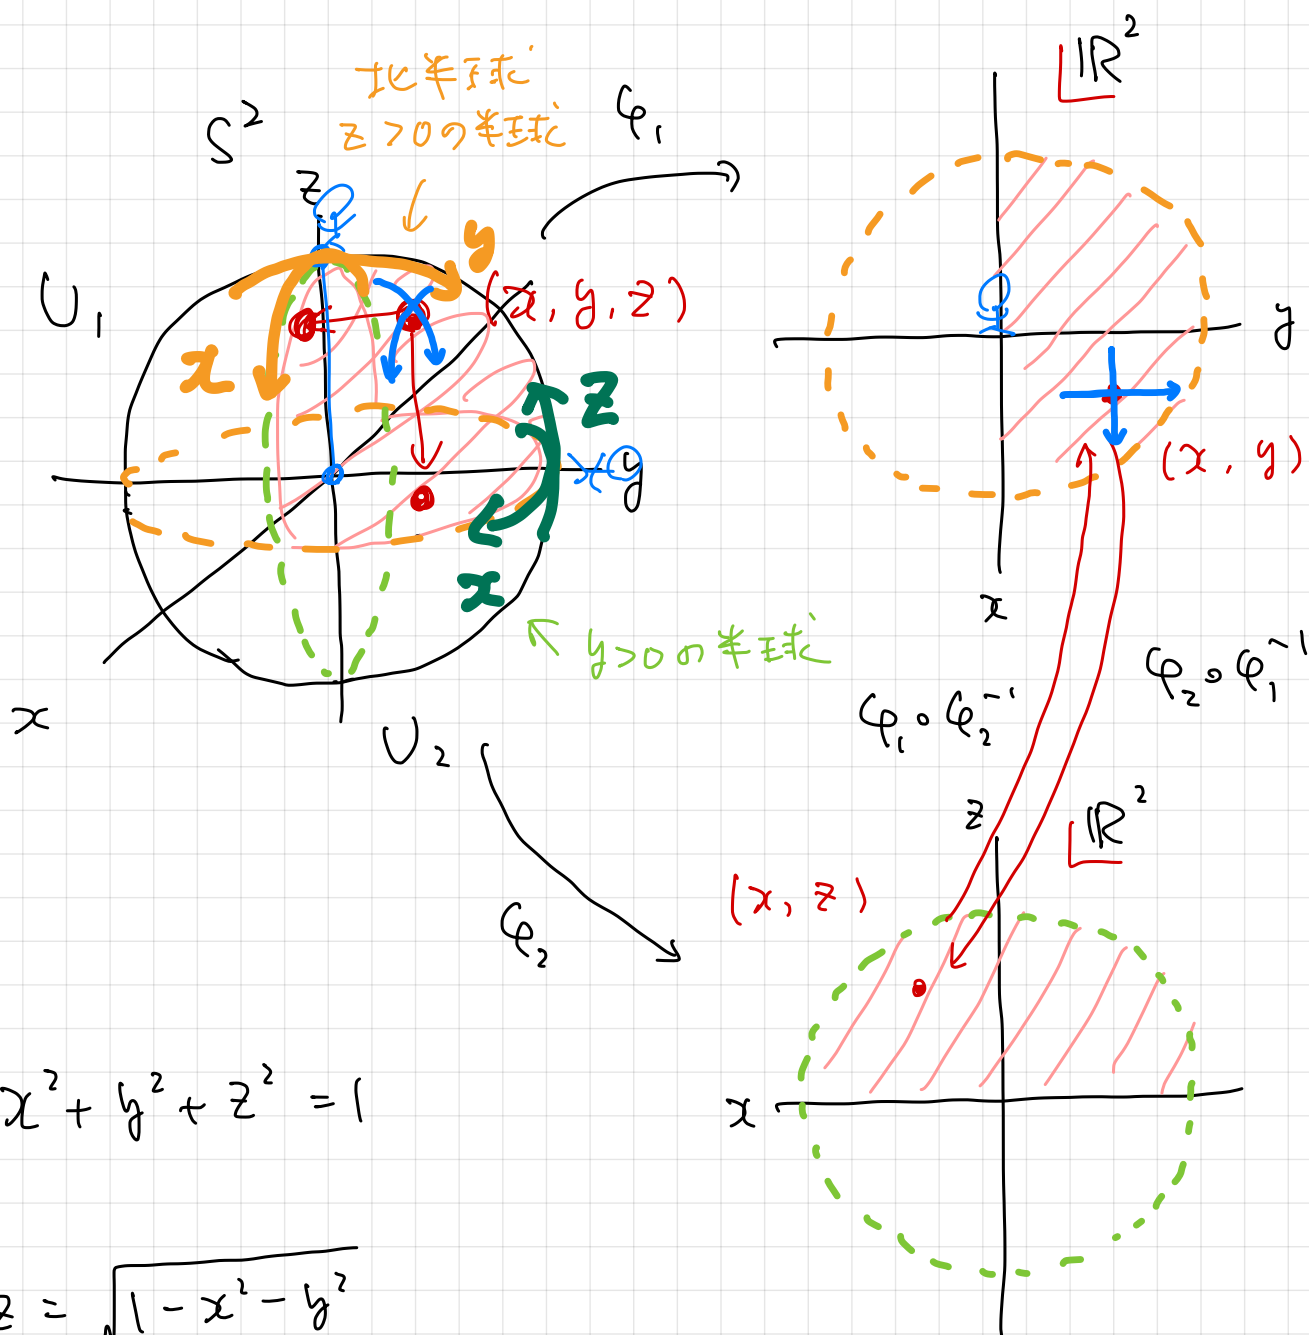 S²
地半球
z>0の半球
φ₁
ℝ²
z
y
U₁
(x, y, z)
x
z
y
x
y
x
(x, y)
x
y>0の半球
φ₁∘φ₂⁻¹
φ₂∘φ₁⁻¹
U₂
z
ℝ²
(x, z)
φ₂
x
x²+y²+z²=1
z=√1-x²-y²